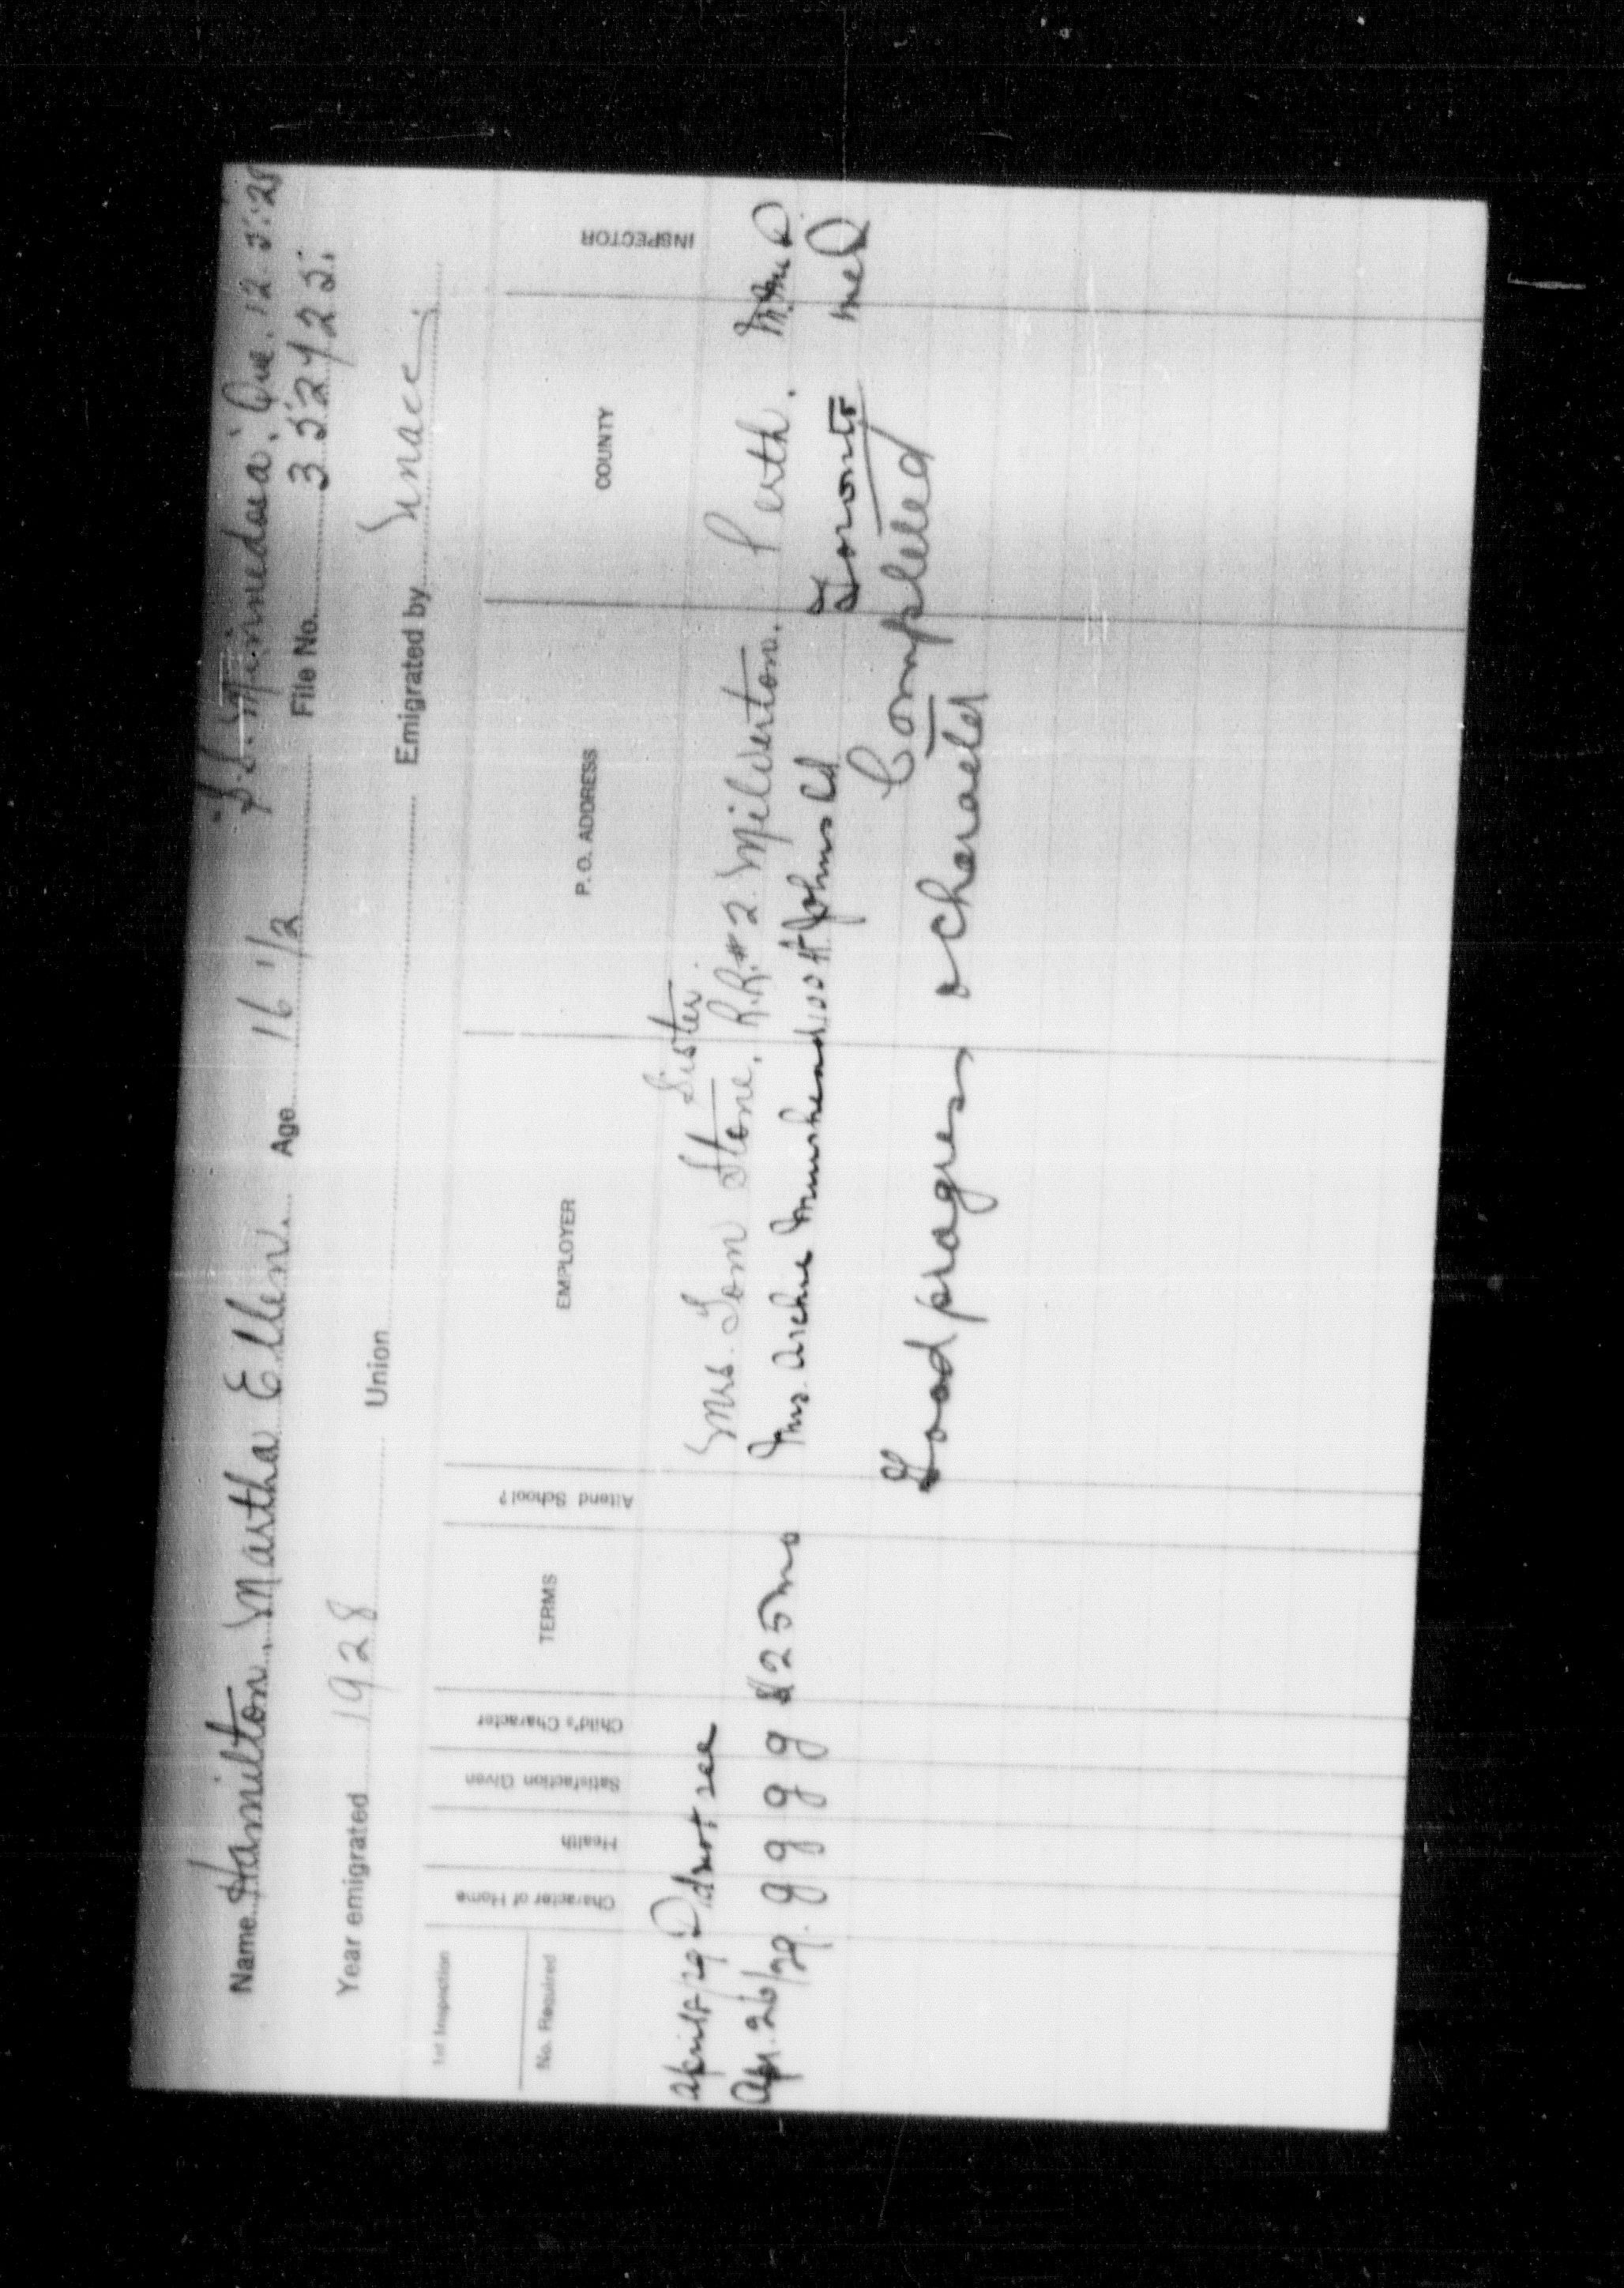 "S.S. Minnedosa". Que. 12.5.'28
Name Hamilton, Martha Ellen. Age 16 1/2 File No. 332425.
Year emigrated 1928 Union Emigrated by
1st Inspection
No. Required
Character of Home Health Satisfaction Given Child's Character TERMS Attend School? EMPLOYER P.O. ADDRESS COUNTY INSPECTOR
Sister.
Mrs. Tom Stone, R.R. # 2 Milverton. Perth.
/29 Did not see
Apr. 26/29. g g g g $25 mo Mrs. Archie Muirhead 100 St Johns Rd Toronto
Completed
Good progress & character